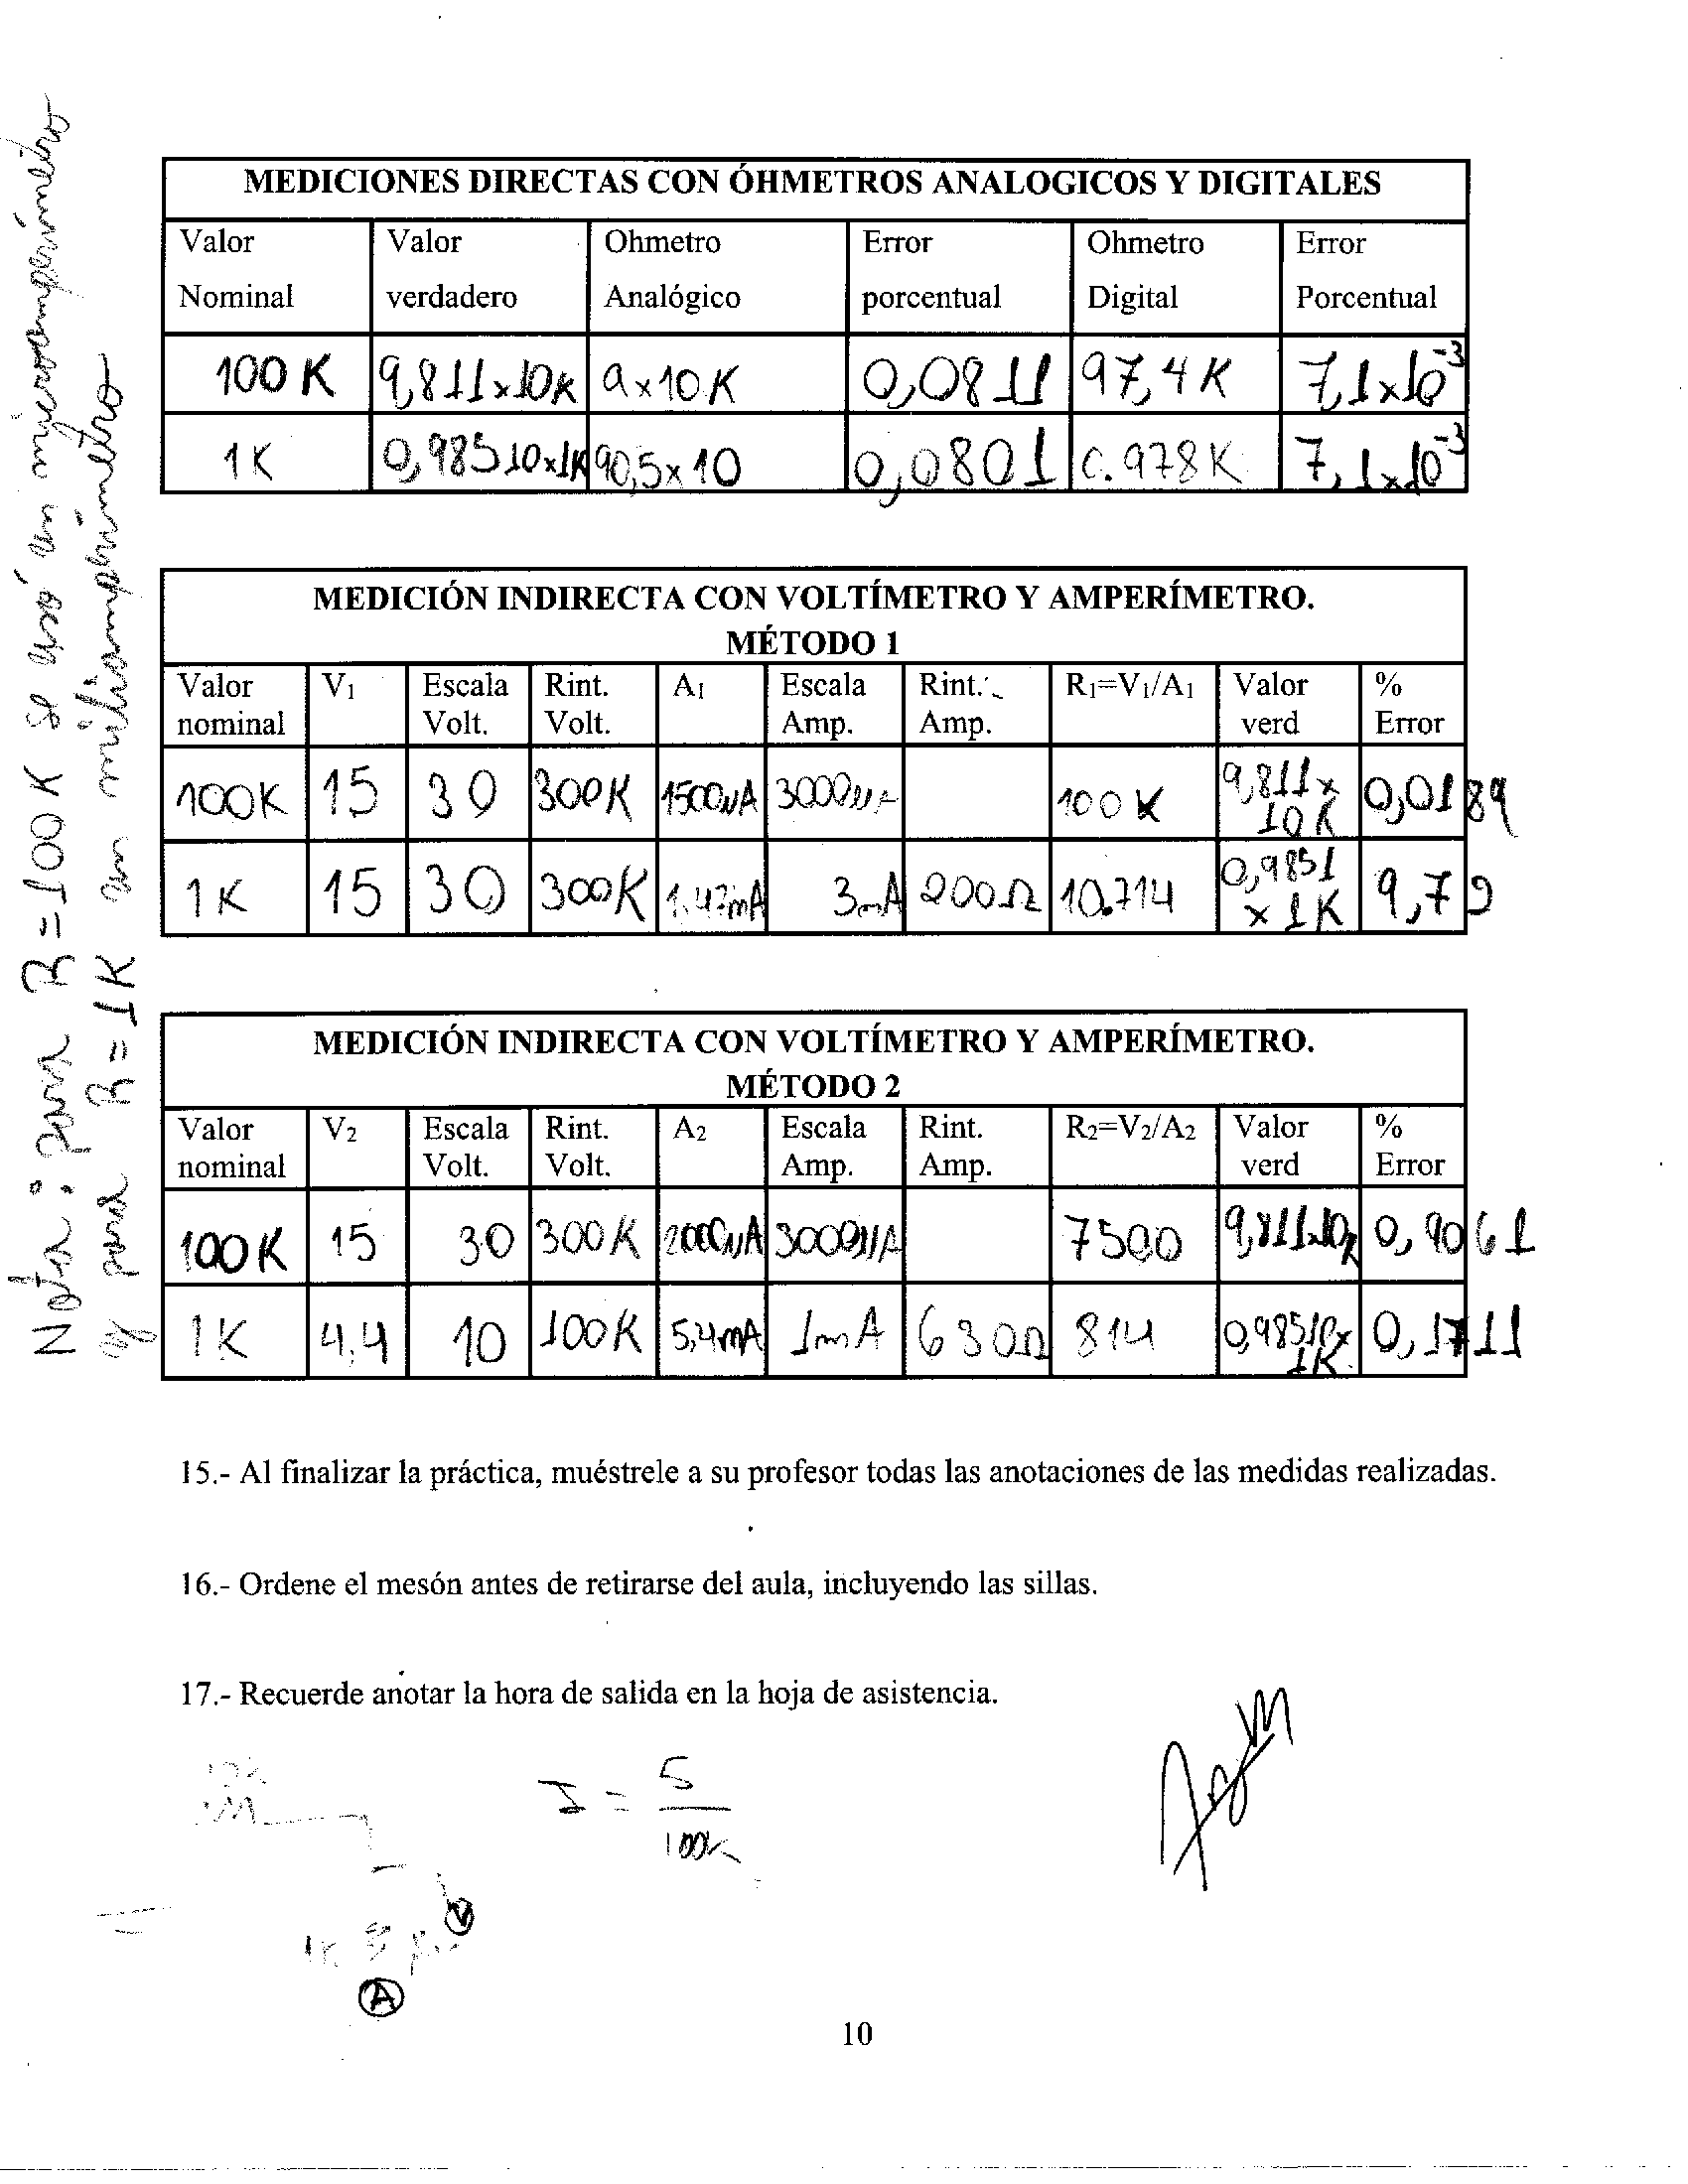 Nota: para R=100K se usó un microamperímetro
y para R=1K un miliamperímetro
MEDICIONES DIRECTAS CON ÓHMETROS ANALOGICOS Y DIGITALES
Valor Nominal Valor verdadero Ohmetro Analógico Error porcentual Ohmetro Digital Error Porcentual
100 K 9,811x10K 9x10 K 0,0811 97,4 K 7,1x10⁻³
1K 0,98510x1K 90,5x10 0,0801 0.978K 7,1x10⁻³
MEDICIÓN INDIRECTA CON VOLTÍMETRO Y AMPERÍMETRO.
MÉTODO 1
Valor nominal V1 Escala Volt. Rint. Volt. A1 Escala Amp. Rint. Amp. R1=V1/A1 Valor verd % Error
100K 15 30 300K 1500µA 3000µA 100 K 9,811x10K 0,0189
1K 15 30 300K 1.47mA 3mA 200Ω 10.714 0,9851x1K 9,79
MEDICIÓN INDIRECTA CON VOLTÍMETRO Y AMPERÍMETRO.
MÉTODO 2
Valor nominal V2 Escala Volt. Rint. Volt. A2 Escala Amp. Rint. Amp. R2=V2/A2 Valor verd % Error
100K 15 30 300K 2000µA 3000µA 7500 9,811x10K 0,9061
1K 4.4 10 100K 5,4mA 1mA 630Ω 814 0,98510x1K 0,1711
15.- Al finalizar la práctica, muéstrele a su profesor todas las anotaciones de las medidas realizadas.
16.- Ordene el mesón antes de retirarse del aula, incluyendo las sillas.
17.- Recuerde anotar la hora de salida en la hoja de asistencia.
I = 5
100K
V
1K
A
10